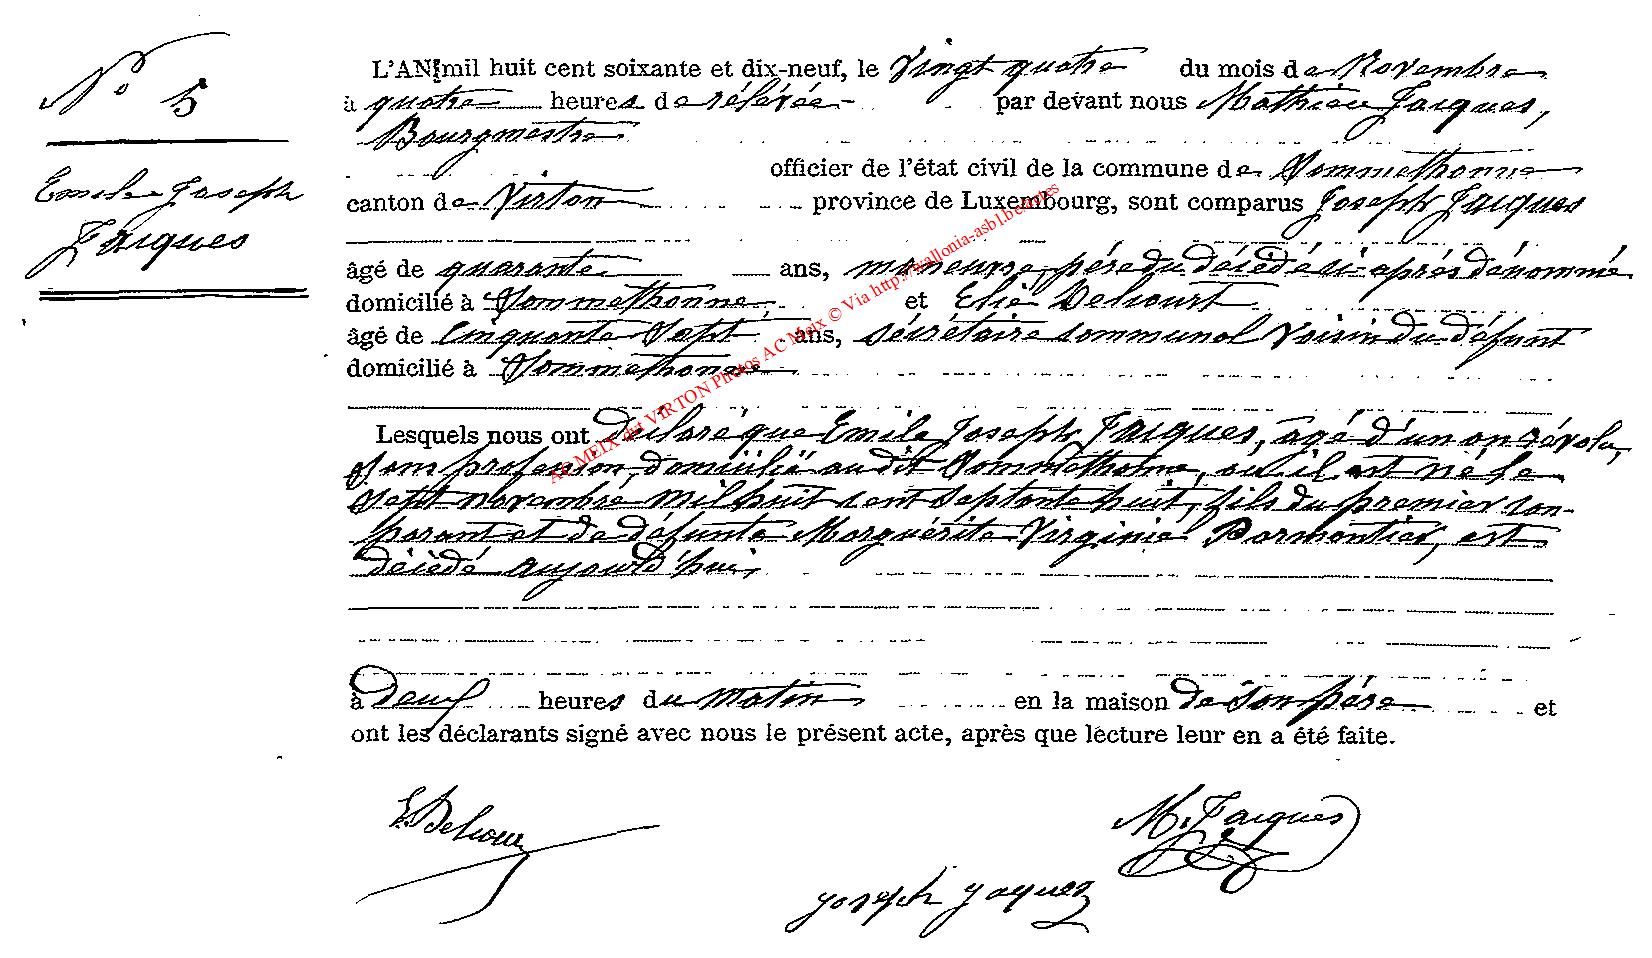 N° 5
Emile Joseph
Jacques
L'AN mil huit cent soixante et dix-neuf, le Vingt quatre du mois de Novembre
à quatre heures de relevée par devant nous Mathieu Jacques,
Bourgmestre
officier de l'état civil de la commune de Sommethonne
canton de Virton province de Luxembourg, sont comparus Joseph Jacques
âgé de quarante ans, manœuvre, père du décédé ci-après dénommé
domicilié à Sommethonne, et Elie Delcourt
âgé de Cinquante Sept ans, sécrétaire communal Voisin du défunt
domicilié à Sommethonne
Lesquels nous ont déclaré que Emile Joseph Jacques, âgé d'un an révolu,
sans profession, domicilié au dit Sommethonne, où il est né le
sept novembre mil huit cent septante huit, fils du premier com-
parant et de défunte Marguérite Virginie Parmentier, est
décédé aujourd'hui,
à deux heures du matin en la maison de son père et
ont les déclarants signé avec nous le présent acte, après que lecture leur en a été faite.
E. Delcour
M. Jacques
joseph jaques
AC MEIX dvt VIRTON Photos AC Meix © Via http://wallonia-asbl.be/actes